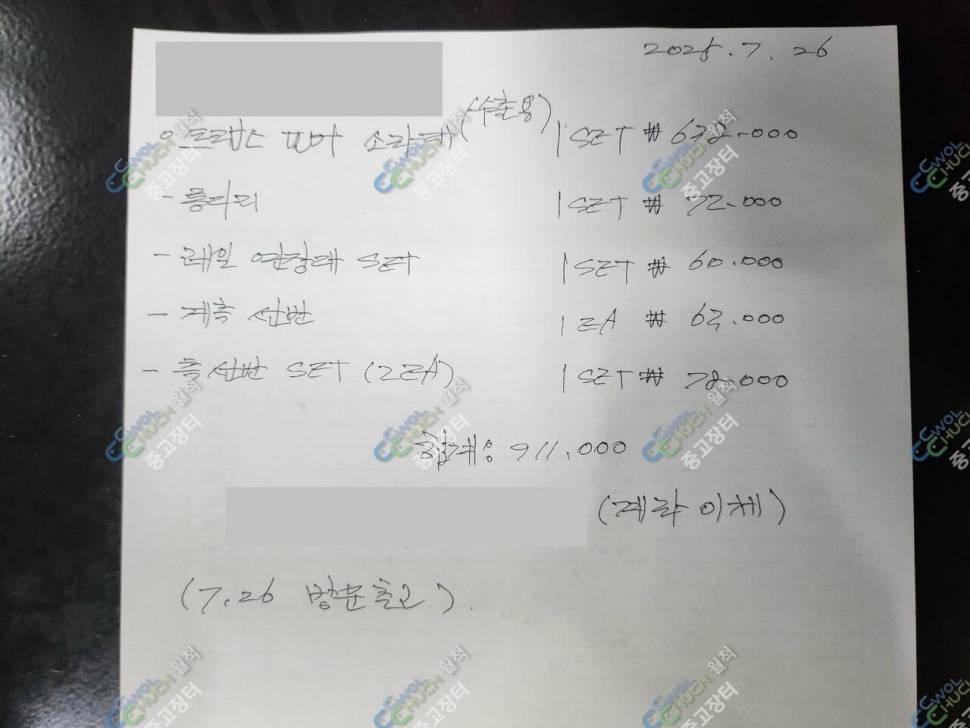 2025.7.26
(수출용)
소좌대 1SET ₩ 638.000
- 롱다리 1SET ₩ 72.000
- 레일 연장대 SET 1SET ₩ 60.000
- 계측 선반 1EA ₩ 63.000
- 측선반 SET (2EA) 1SET ₩ 78.000
합계: 911.000
(계좌 이체)
(7.26 방문출고).
CWOL CHUCH 월척 중고장터